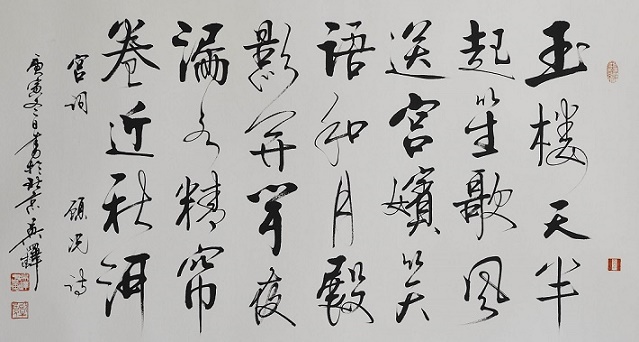 玉楼天半
起笙歌风
送宫嫔笑
语和月殿
影开闻夜
漏水精帘
卷近秋河
宫词 顾况诗
庚寅冬日书于北京